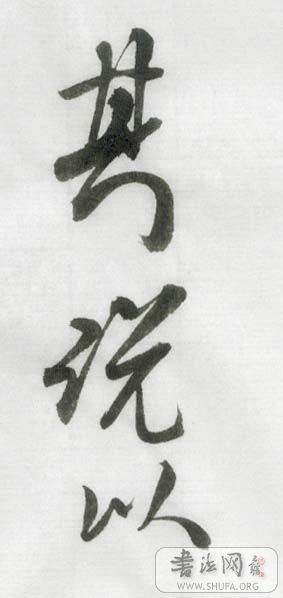 其说以
书法网
WWW.SHUFA.ORG